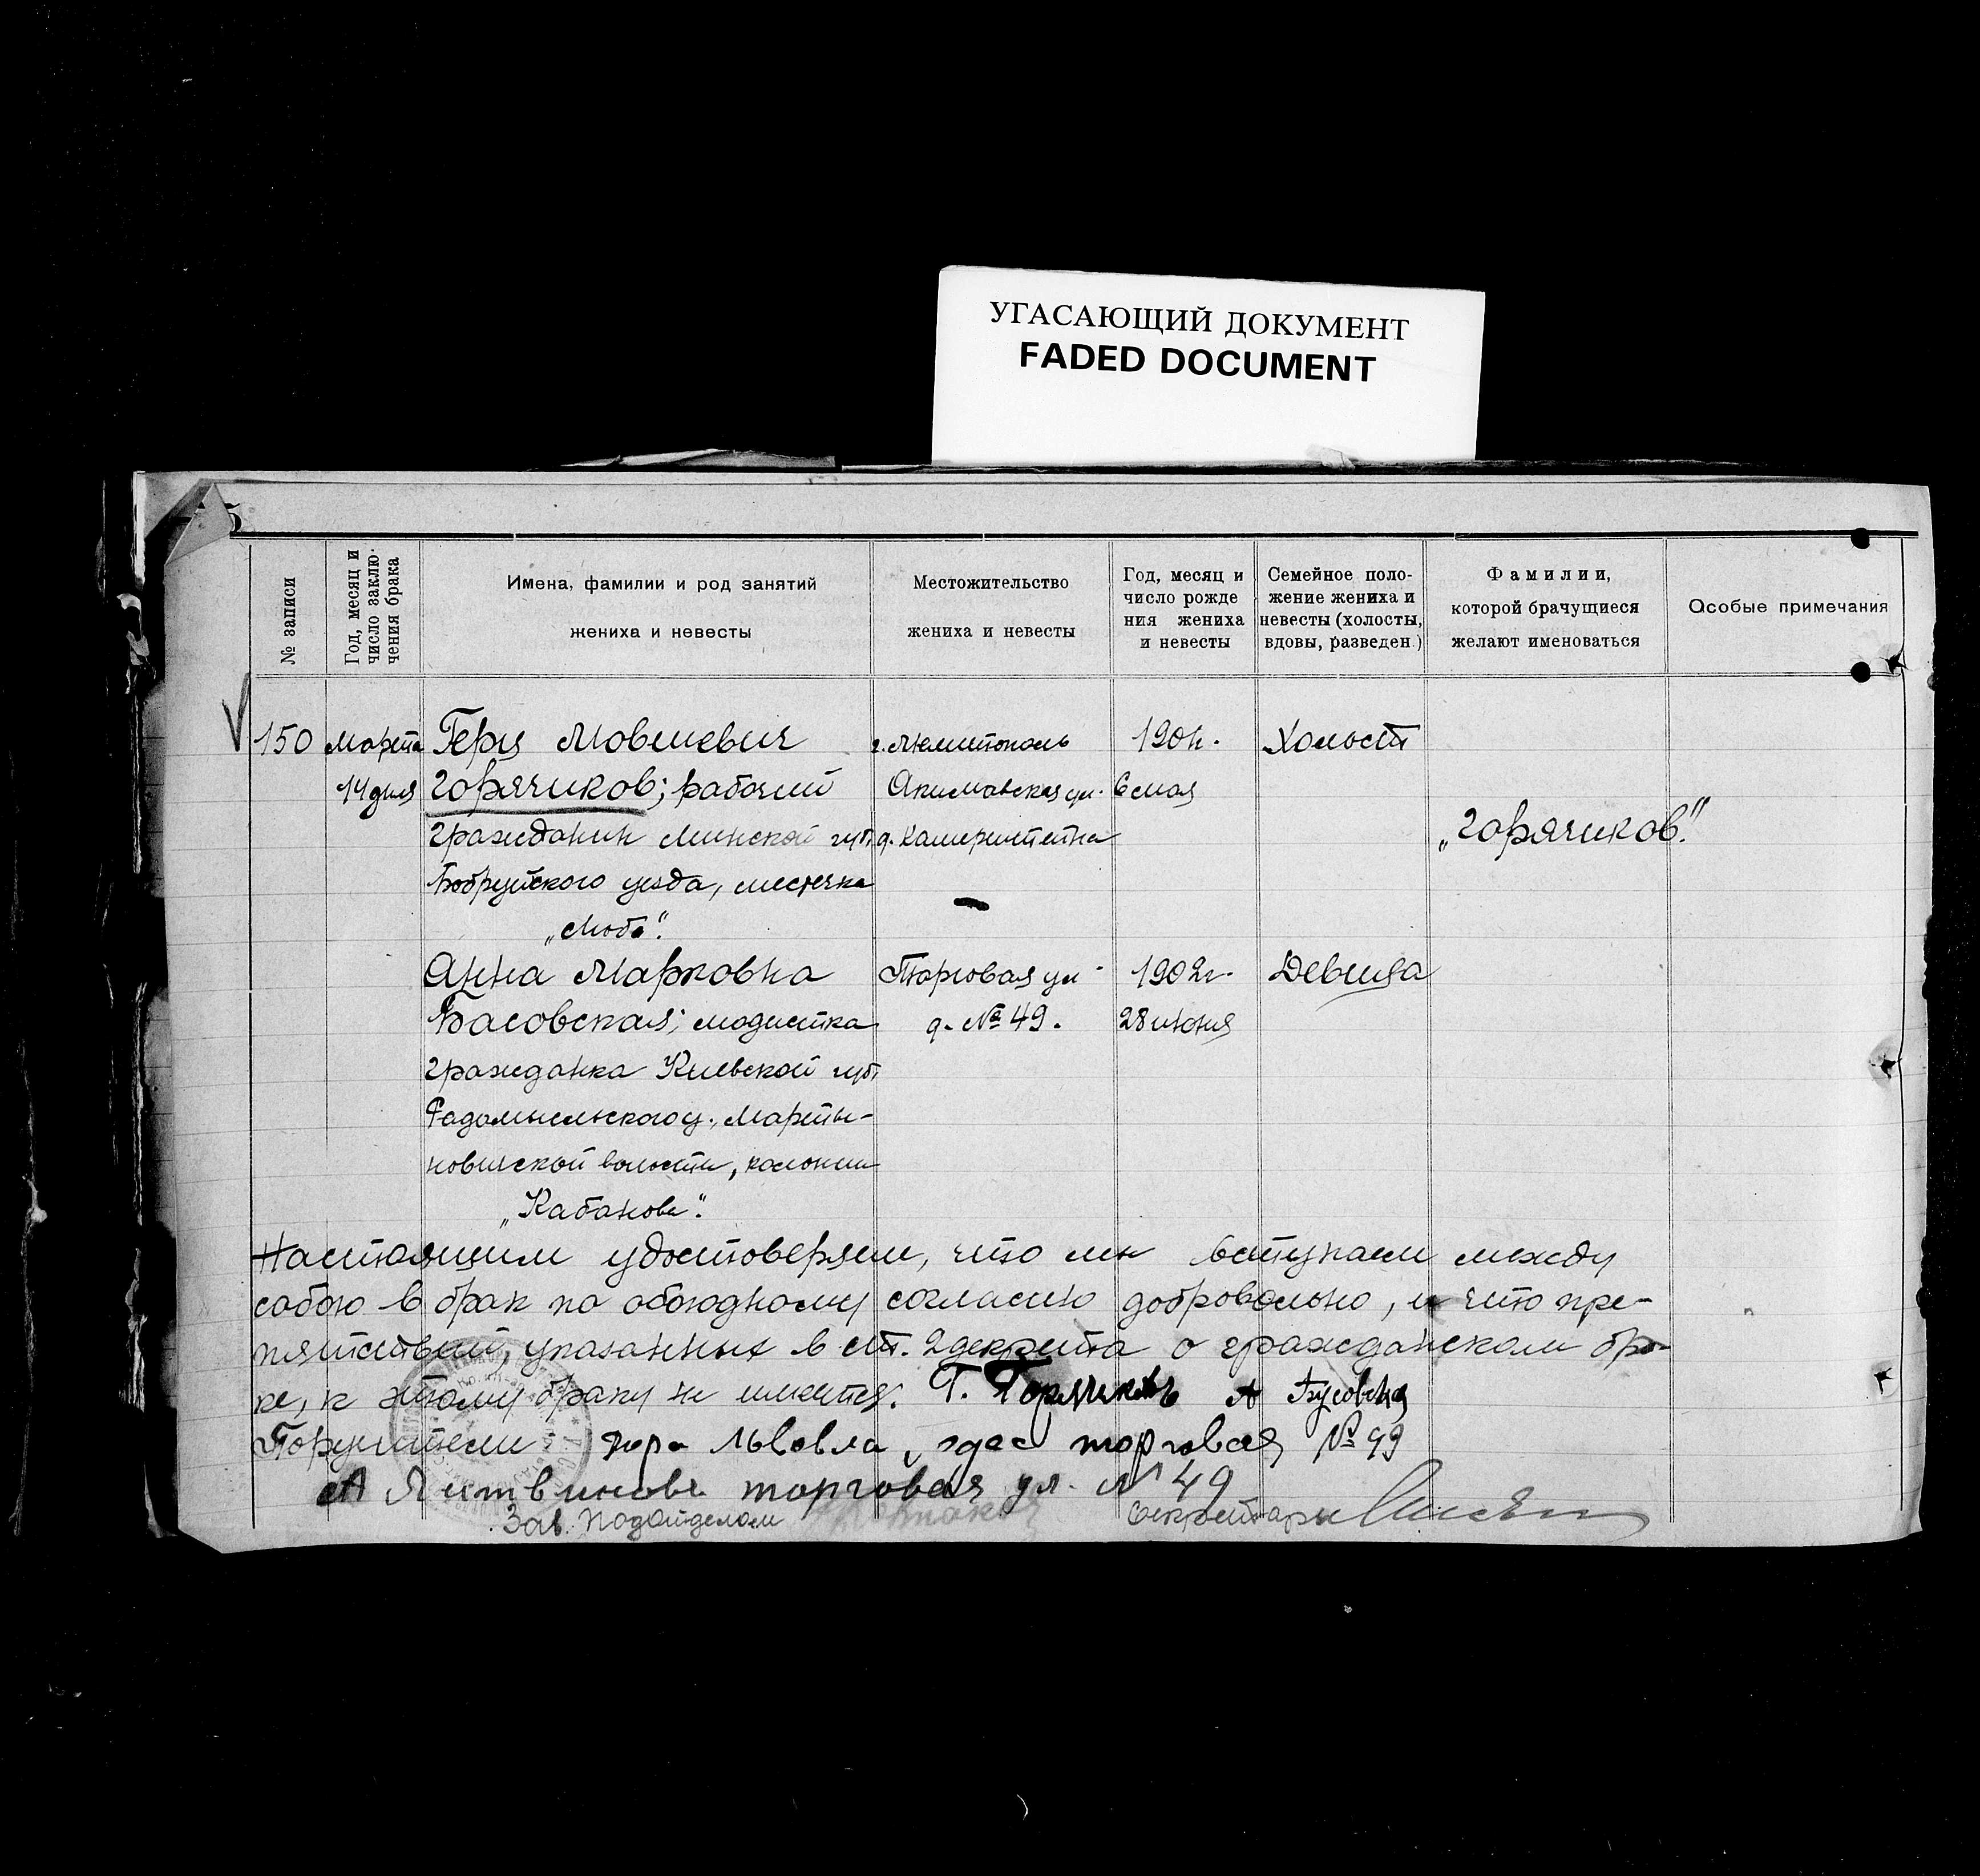 УГАСАЮЩИЙ ДОКУМЕНТ
FADED DOCUMENT
№ записи
Год, месяц и
число заклю-
чения брака
Имена, фамилии и род занятий
жениха и невесты
Местожительство
жениха и невесты
Год, месяц и
число рожде
ния жениха
и невесты
Семейное поло-
жение жениха и
невесты (холосты,
вдовы, разведен.)
Фамилии,
которой брачущиеся
желают именоваться
Особые примечания
150
Марта
14 дня
Герц Мовшевич
Горячиков; рабочий
гражданин Минской губ.
Бобруйского уезда, местечка
г. Мелитополь
Акимовская ул.
6 мая
Холост
„Горячиков."
Анна Марковна
Басовская; модистка
гражданка Киевской губ.
Радомысльского у., Марты-
новичской волости, колонии
„Кабанова".
Торговая ул.
д. № 49.
1902 г.
28 июня
Девица
Настоящим удостоверяем, что мы вступаем между
собою в брак по обоюдному согласию добровольно, и что пре-
пятствий, указанных в ст. 2 декрета о гражданском бра-
ке, к этому браку не имеется. Г. Горячиковъ А
Поручители: Львовна, торговая № 49
А Литвиновъ торговая ул. № 49
Зав. Подотделом
Секретарь